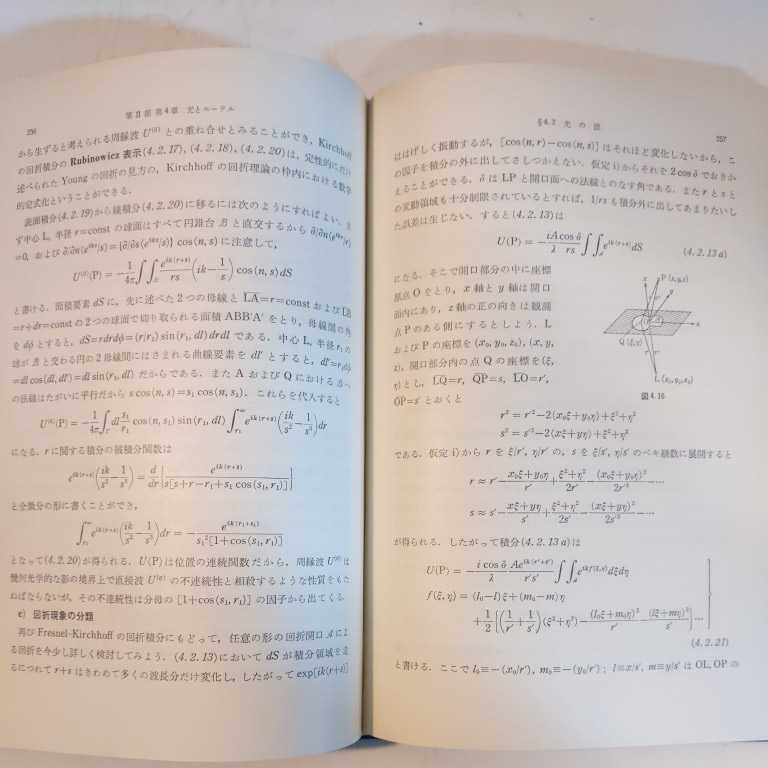 256
第II部 第4章 光とエーテル
から生ずると考えられる周縁波 U⁽ᵈ⁾ との重ね合せとみることができ,Kirchhoff
の回折積分の Rubinowicz 表示(4.2.17), (4.2.18), (4.2.20)は,定性的にだけ
述べられた Young の回折の見方の,Kirchhoff の回折理論の枠内における数学
的定式化ということができる.
表面積分(4.2.19)から線積分(4.2.20)に移るには次のようにすればよい.
ず中心 L, 半径 r=const の球面はすべて円錐台 B と直交するから ∂/∂n(e^{ikr}/r)
=0, および ∂/∂n(e^{iks}/s)={∂/∂s(e^{iks}/s)} cos(n, s) に注意して,
U⁽ᵈ⁾(P) = −1/4π ∬_B e^{ik(r+s)}/rs (ik − 1/s) cos(n, s) dS
と書ける.面積要素 dS に,先に述べた2つの母線と LA=r=const および LB
=r+dr=const の2つの球面で切り取られる面積 ABB′A′ をとり,母線間の角
を dφ とすると,dS=rdrdφ=(r/r₁) sin(r₁, dl) drdl である.中心 L, 半径 r₁ の
球が B と交わる円の2母線間にはさまれる曲線要素を dl′ とすると,dl′=r₁dφ
=dl cos(dl, dl′)=dl sin(r₁, dl) だからである.また A および Q における B への
の法線はたがいに平行だから s cos(n, s)=s₁ cos(n, s₁). これらを代入すると
U⁽ᵈ⁾(P) = −1/4π ∫_Γ dl s₁/r₁ cos(n, s₁) sin(r₁, dl) ∫_{r₁}^{∞} e^{ik(r+s)} (ik/s² − 1/s³) dr
になる.r に関する積分の被積分関数は
e^{ik(r+s)} (ik/s² − 1/s³) = d/dr [e^{ik(r+s)} / s[s+r−r₁+s₁ cos(s₁, r₁)]]
と全微分の形に書くことができ,
∫_{r₁}^{∞} e^{ik(r+s)} (ik/s² − 1/s³) dr = − e^{ik(r₁+s₁)} / s₁²[1+cos(s₁, r₁)]
となって(4.2.20)が得られる.U(P) は位置の連続関数だから,周縁波 U⁽ᵈ⁾ は
幾何光学的な影の境界上で直接波 U⁽ᵍ⁾ の不連続性と相殺するような性質をもた
ねばならないが,その不連続性は分母の [1+cos(s₁, r₁)] の因子から出てくる.
e) 回折現象の分類
再び Fresnel-Kirchhoff の回折積分にもどって,任意の形の回折開口 A によ
る回折を今少し詳しく検討してみよう.(4.2.13)において dS が積分領域を走
るにつれて r+s はきわめて多くの波長分だけ変化し,したがって exp[ik(r+s)]
§4.2 光の波
257
ははげしく振動するが,[cos(n, r)−cos(n, s)] はそれほど変化しないから,こ
の因子を積分の外に出してさしつかえない.仮定 i)からそれを 2cos δ でおきか
えることができる.δ は LP と開口面への法線とのなす角である.また r と s と
の変動領域も十分制限されているとすれば,1/rs も積分外に出してあまりたいし
た誤差は生じない.すると(4.2.13)は
U(P) = −iA cos δ/λ 1/rs ∬_A e^{ik(r+s)} dS (4.2.13 a)
になる.そこで開口部分の中に座標
原点 O をとり,x 軸と y 軸は開口
面内にあり,z 軸の正の向きは観測
点 P のある側にするとしよう.L
および P の座標を (x₀, y₀, z₀), (x, y,
z), 開口部分内の点 Q の座標を (ξ,
η) とし,LQ=r, QP=s, LO=r′,
OP=s′ とおくと
P (x, y, z)
Q (ξ, η)
L (x₀, y₀, z₀)
図4.16
r² = r′²−2(x₀ξ+y₀η)+ξ²+η²
s² = s′²−2(xξ+yη)+ξ²+η²
である.仮定 i)から r を ξ/r′, η/r′ の,s を ξ/s′, η/s′ のベキ級数に展開すると
r ≈ r′ − (x₀ξ+y₀η)/r′ + (ξ²+η²)/2r′ − (x₀ξ+y₀η)²/2r′³ − …
s ≈ s′ − (xξ+yη)/s′ + (ξ²+η²)/2s′ − (xξ+yη)²/2s′³ − …
が得られる.したがって積分(4.2.13 a)は
U(P) = −i cos δ/λ Ae^{ik(r′+s′)}/r′s′ ∬_A e^{ikf(ξ,η)} dξdη
f(ξ, η) = (l₀−l)ξ+(m₀−m)η
+1/2 {(1/r′ + 1/s′)(ξ²+η²) − (l₀ξ+m₀η)²/r′ − (lξ+mη)²/s′} …
(4.2.21)
と書ける.ここで l₀≡−(x₀/r′), m₀≡−(y₀/r′); l≡x/s′, m≡y/s′ は OL, OP の